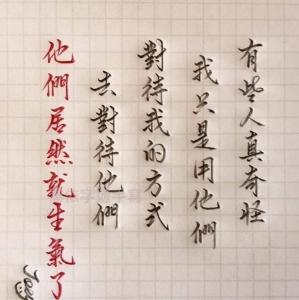 有些人真奇怪
我只是用他們
對待我的方式
去對待他們
他們居然就生氣了